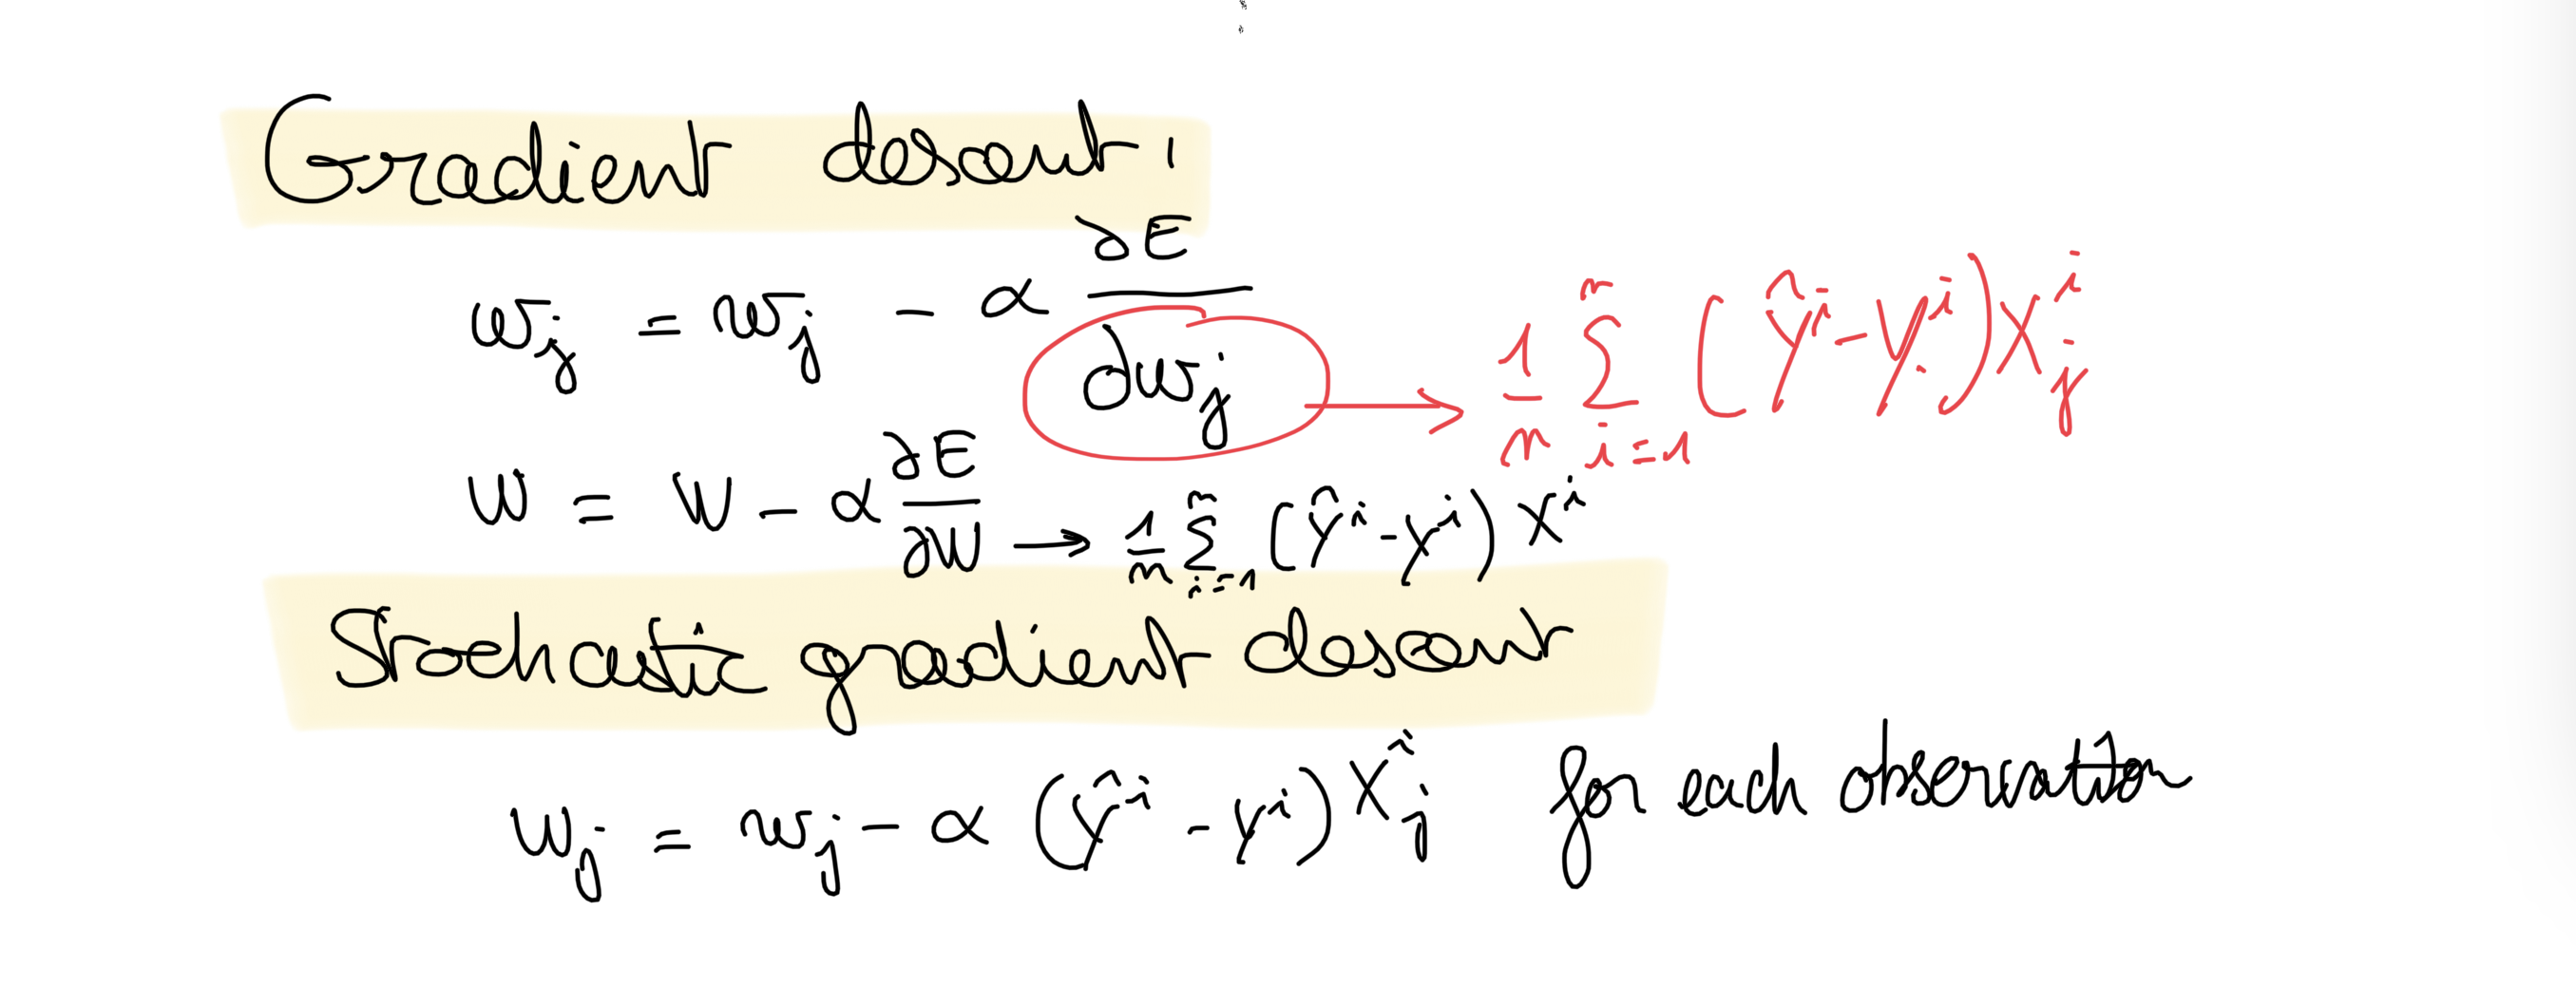 Gradient descent :
w_j = w_j - α ∂E / dw_j → 1/n Σ_{i=1}^{n} (ŷ^i - y^i) x_j^i
W = W - α ∂E / ∂W → 1/n Σ_{i=1}^{n} (ŷ^i - y^i) x^i
Stochastic gradient descent
w_j = w_j - α (ŷ^i - y^i) x_j^i for each observation